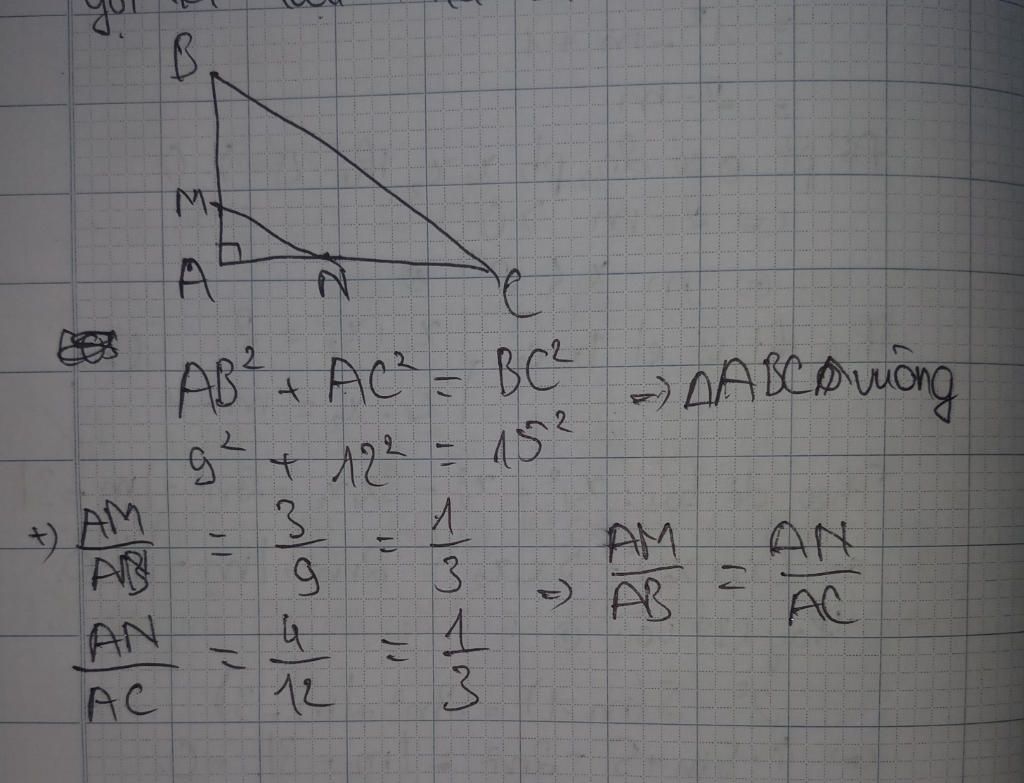 B
M
A N C
AB² + AC² = BC² => ΔABC vuông
9² + 12² = 15²
+) AM/AB = 3/9 = 1/3 => AM/AB = AN/AC
AN/AC = 4/12 = 1/3